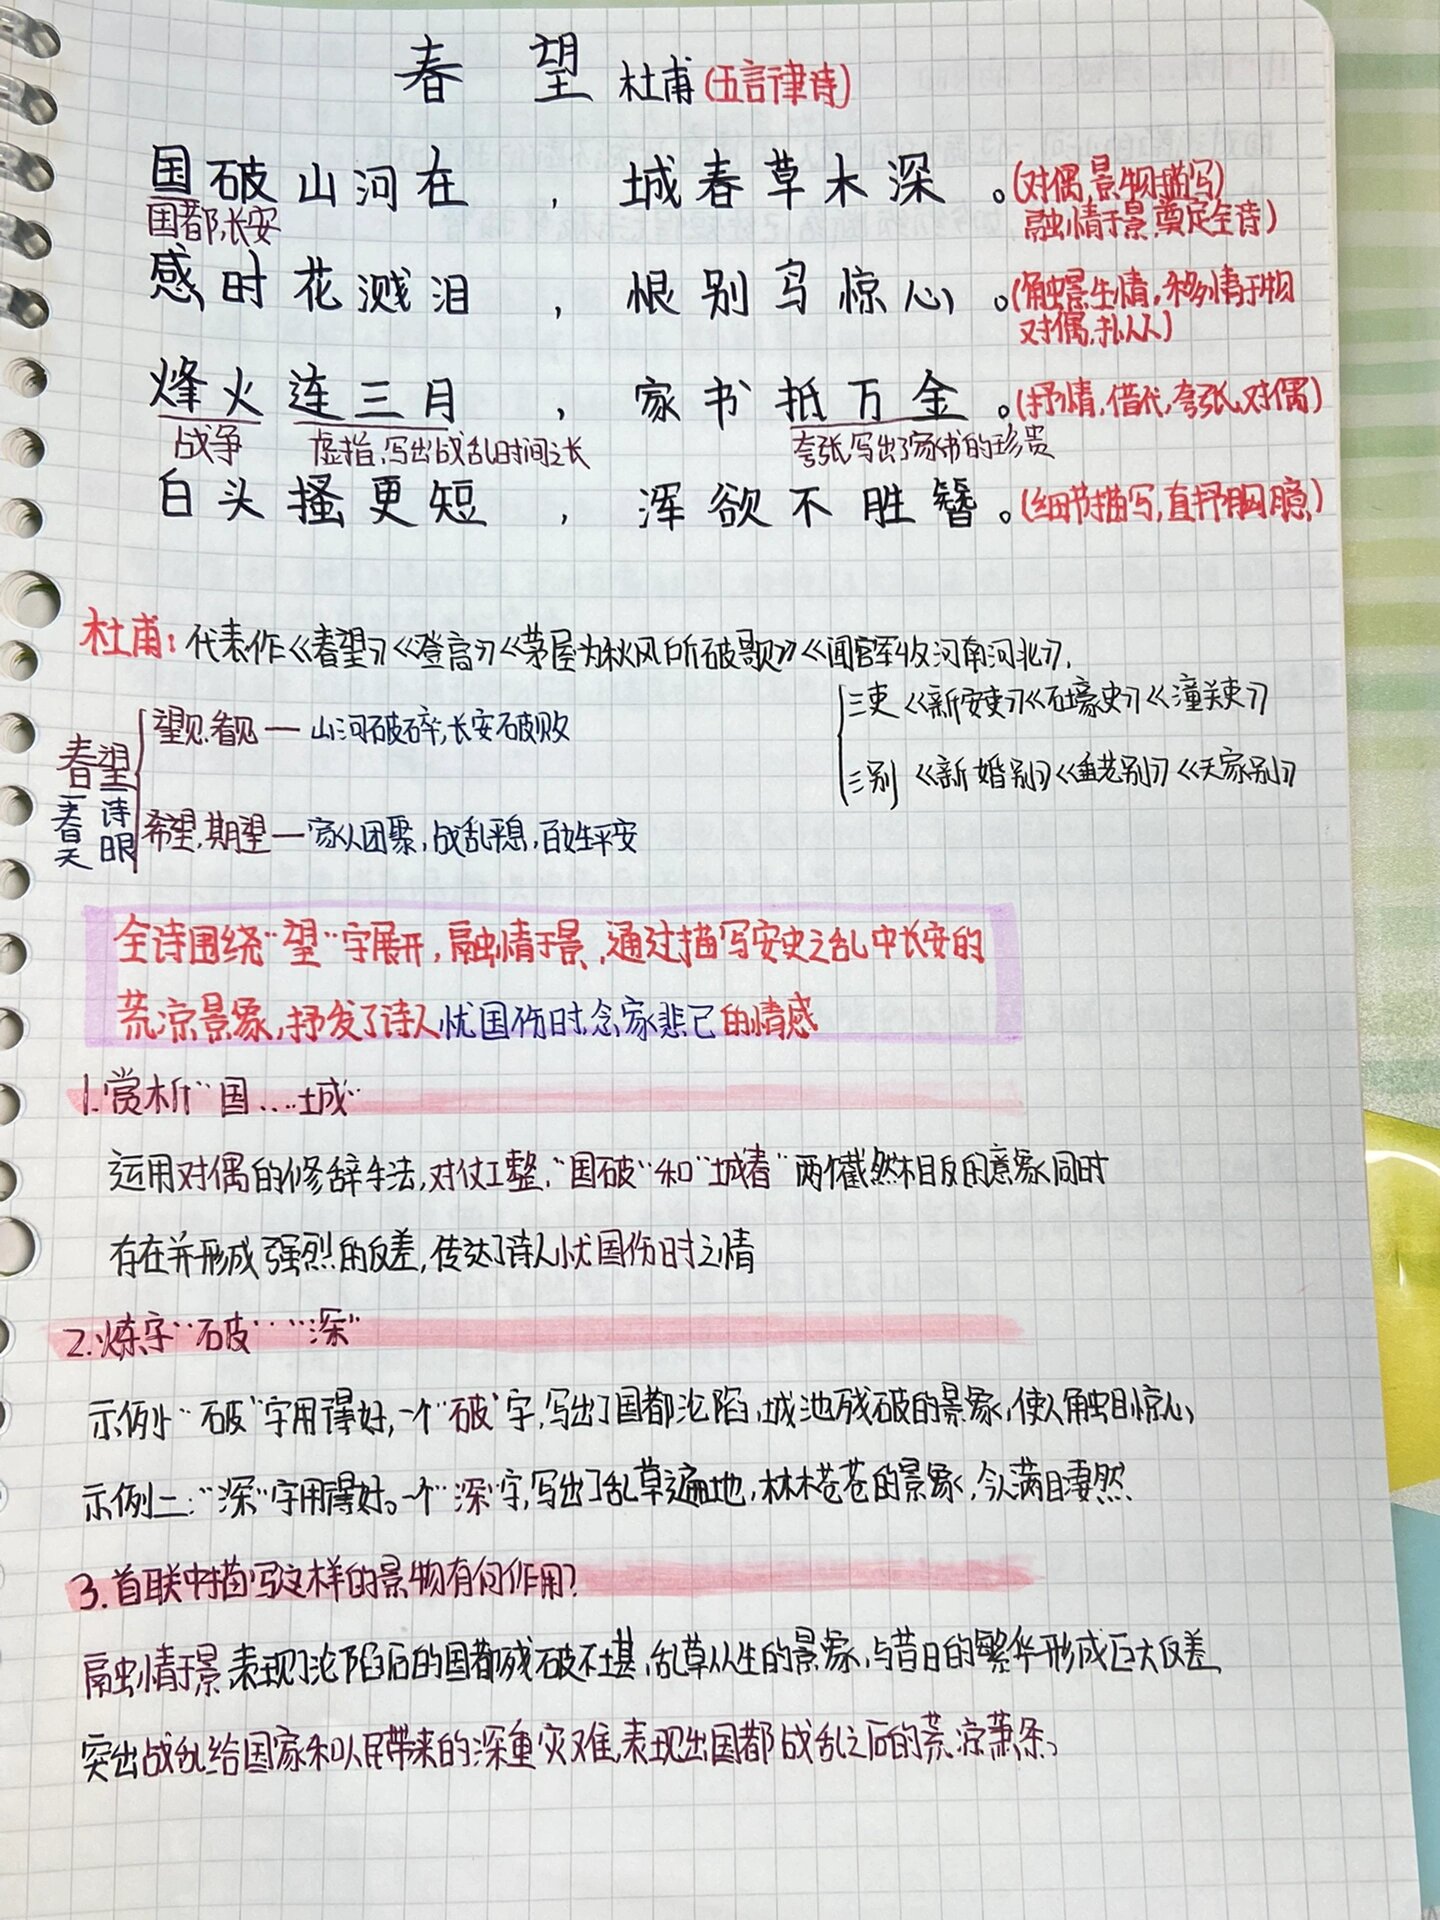 春 望 杜甫(五言律诗)
国破山河在，城春草木深。(对偶,景物描写)
国都,长安
融情于景,奠定全诗)
感时花溅泪，恨别鸟惊心。(触景生情,移情于物
对偶,拟人)
烽火连三月，家书抵万金。(抒情,借代,夸张,对偶)
战争 虚指,写出战乱时间之长 夸张,写出了家书的珍贵
白头搔更短，浑欲不胜簪。(细节描写,直抒胸臆)
杜甫:代表作《春望》《登高》《茅屋为秋风所破歌》《闻官军收河南河北》,
三吏《新安吏》《石壕吏》《潼关吏》
三别《新婚别》《垂老别》《无家别》
春望
春天 诗眼
望见,看见—山河破碎,长安破败
希望,期望—家人团聚,战乱平息,百姓平安
全诗围绕“望”字展开,融情于景,通过描写安史之乱中长安的
荒凉景象,抒发了诗人忧国伤时,念家悲己的情感
1.赏析“国....城”
运用对偶的修辞手法,对仗工整,“国破”和“城春”两个截然相反的意象同时
存在并形成强烈的反差,传达了诗人忧国伤时之情
2.炼字“破”“深”
示例1:“破”字用得好,一个“破”字,写出了国都沦陷,城池残破的景象,使人触目惊心
示例二:“深”字用得好。一个“深”字,写出了乱草遍地,林木苍苍的景象,令人满目凄然.
3.首联中描写这样的景物有何作用?
融情于景,表现了沦陷后的国都残破不堪,乱草丛生的景象,与昔日的繁华形成巨大反差,
突出战乱给国家和人民带来的深重灾难,表现出国都战乱之后的荒凉萧条,